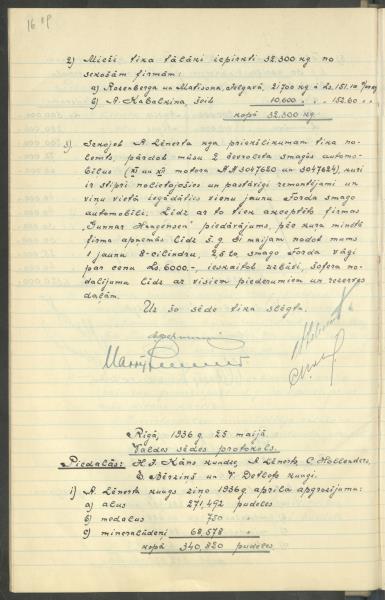 16 lp
2) Mieži tika tālāki iepirkti 32.300 kg no
sekošām firmām:
a) Rosenberga un Matisona, Jelgavā, 21700 kg à Ls. 151.10
b) A. Kabalkina, šeit 10.600 " " 152.60
kopā 32.300 kg.
3) Izejot A. Lēnerta kga priekšlikumam tika no-
lemts, pārdot mūsu 2 Chevroleta smagās automo-
bīlus (XI un XII motora № 3047620 un 3047624), kuri
ir stipri nolietojušies un pastāvīgi remontējami un
viņu vietā iegādāties vienu jaunu Forda smago
automobīli. Līdz ar to tiek akceptēts firmas
"Gunnar Haagensen" piedāvājums, pēc kura minētā
firma apņemās līdz š.g. 31 maijam nodot mums
1 jaunu 8-cilindru, 2,5 to. smago Forda vāģi
par cenu Ls. 6000.-, ieskaitot šofera no-
dalījumu līdz ar visiem piederumiem un rezerves
daļām.
Uz šo sēde tika slēgta.
Rīgā, 1936 g. 25 maijā.
Valdes sēdes protokols.
Piedalās: H. J. Kāns kundze, A. Lēnerts, C. Hollanders,
E. Bērziņš un V. Detlofs kungi.
1) A. Lēnerts kungs ziņo 1936 g. aprīļa apgrozījumu:
a) alus 271,492 pudeles
b) medalus 750 "
c) minerālūdeņi 68,578 "
kopā 340,820 pudeles.